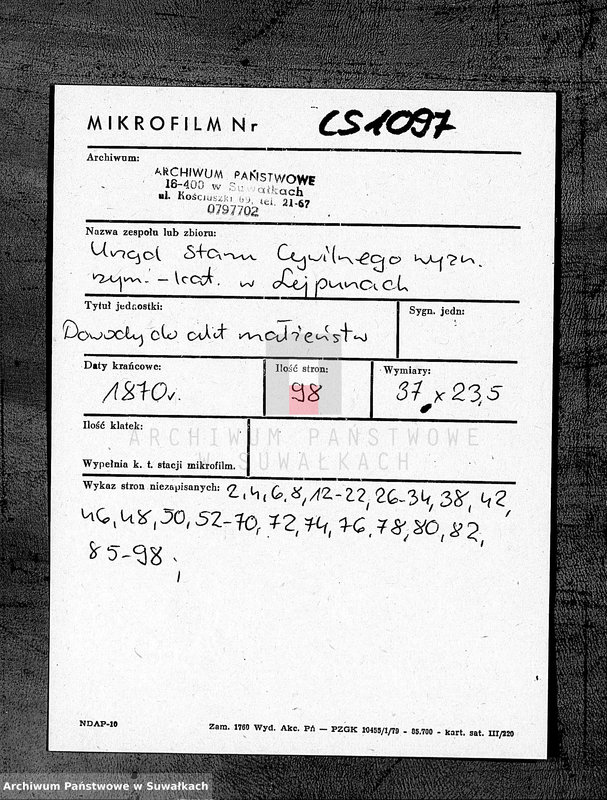 MIKROFILM Nr CS1097
Archiwum:
ARCHIWUM PAŃSTWOWE
16-400 w Suwałkach
ul. Kościuszki 69, tel. 21-67
0797702
Nazwa zespołu lub zbioru:
Urząd Stanu Cywilnego wyzn.
rzym.-kat. w Lejpunach
Tytuł jednostki:
Sygn. jedn:
Dowody do akt małżeństw
Daty krańcowe:
Ilość stron:
Wymiary:
1870r.
98
37 x 23,5
Ilość klatek:
ARCHIWUM PAŃSTWOWE
W SUWAŁKACH
Wypełnia k. t. stacji mikrofilm.
Wykaz stron niezapisanych: 2,4,6,8,12-22,26-34,38,42,
46,48,50,52-70,72,74,76,78,80,82,
85-98;
NDAP-10
Zam. 1760 Wyd. Akc. Pń — PZGK 10455/I/79 - 85.700 - kart. sat. III/220
Archiwum Państwowe w Suwałkach